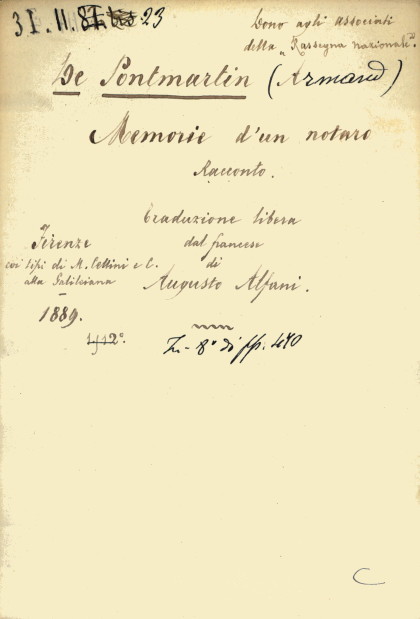 31.11.81. 23
Dono agli associati
della „Rassegna nazionale".
De Pontmartin (Armand)
Memorie d'un notaro
Racconto.
Traduzione libera
dal francese
di
Augusto Alfani.
Firenze
coi tipi di M. Cellini e C.
alla Galileiana
–
1889.
In-8° di pp. 440
C